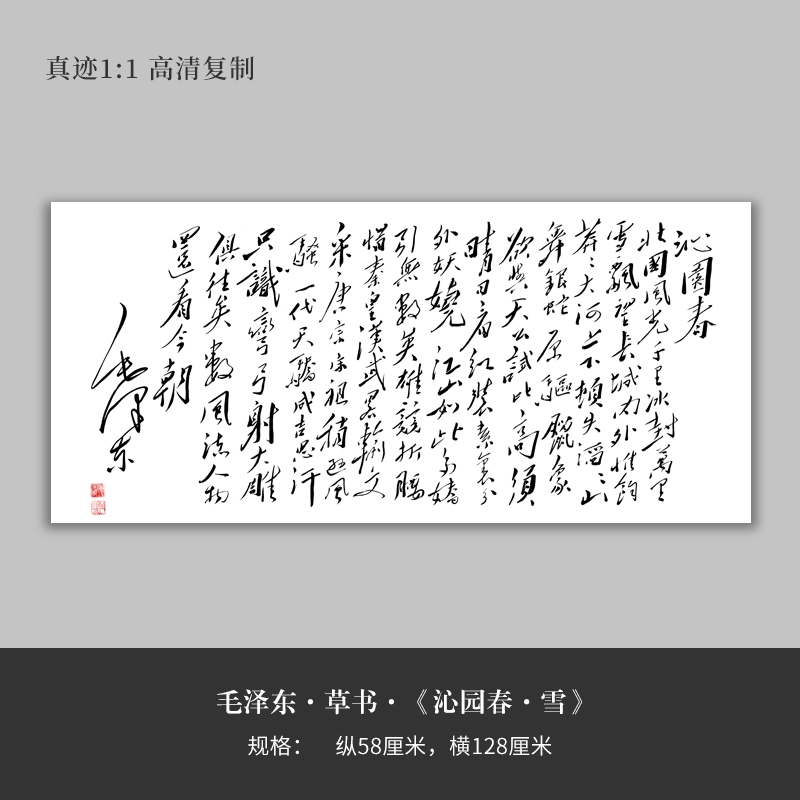 真迹1:1 高清复制
沁園春
北國風光千里冰封萬里
雪飄望長城内外惟餘
莽莽大河上下頓失滔滔山
舞銀蛇原驅蠟象
欲與天公試比高須
晴日看紅裝素裹分
外妖嬈江山如此多嬌
引無數英雄競折腰
惜秦皇漢武略輸文
采唐宗宋祖稍遜風
騷一代天驕成吉思汗
只識彎弓射大雕
俱往矣數風流人物
還看今朝
毛澤东
毛泽东·草书·《沁园春·雪》
规格： 纵58厘米，横128厘米